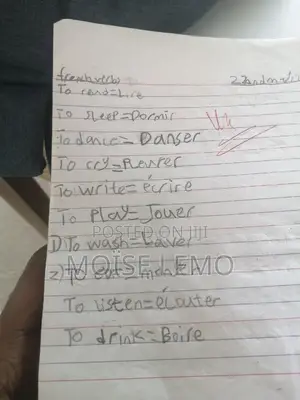 french verbs
To read=Lire
To sleep=Dormir
To dance=Danser
To cry=Pleurer
To write=écrire
To Play=Jouer
POSTED ON JIJI
1) To wash=Laver
MOÏSE LEMO
2) To eat=
To listen=écouter
To drink=Boire